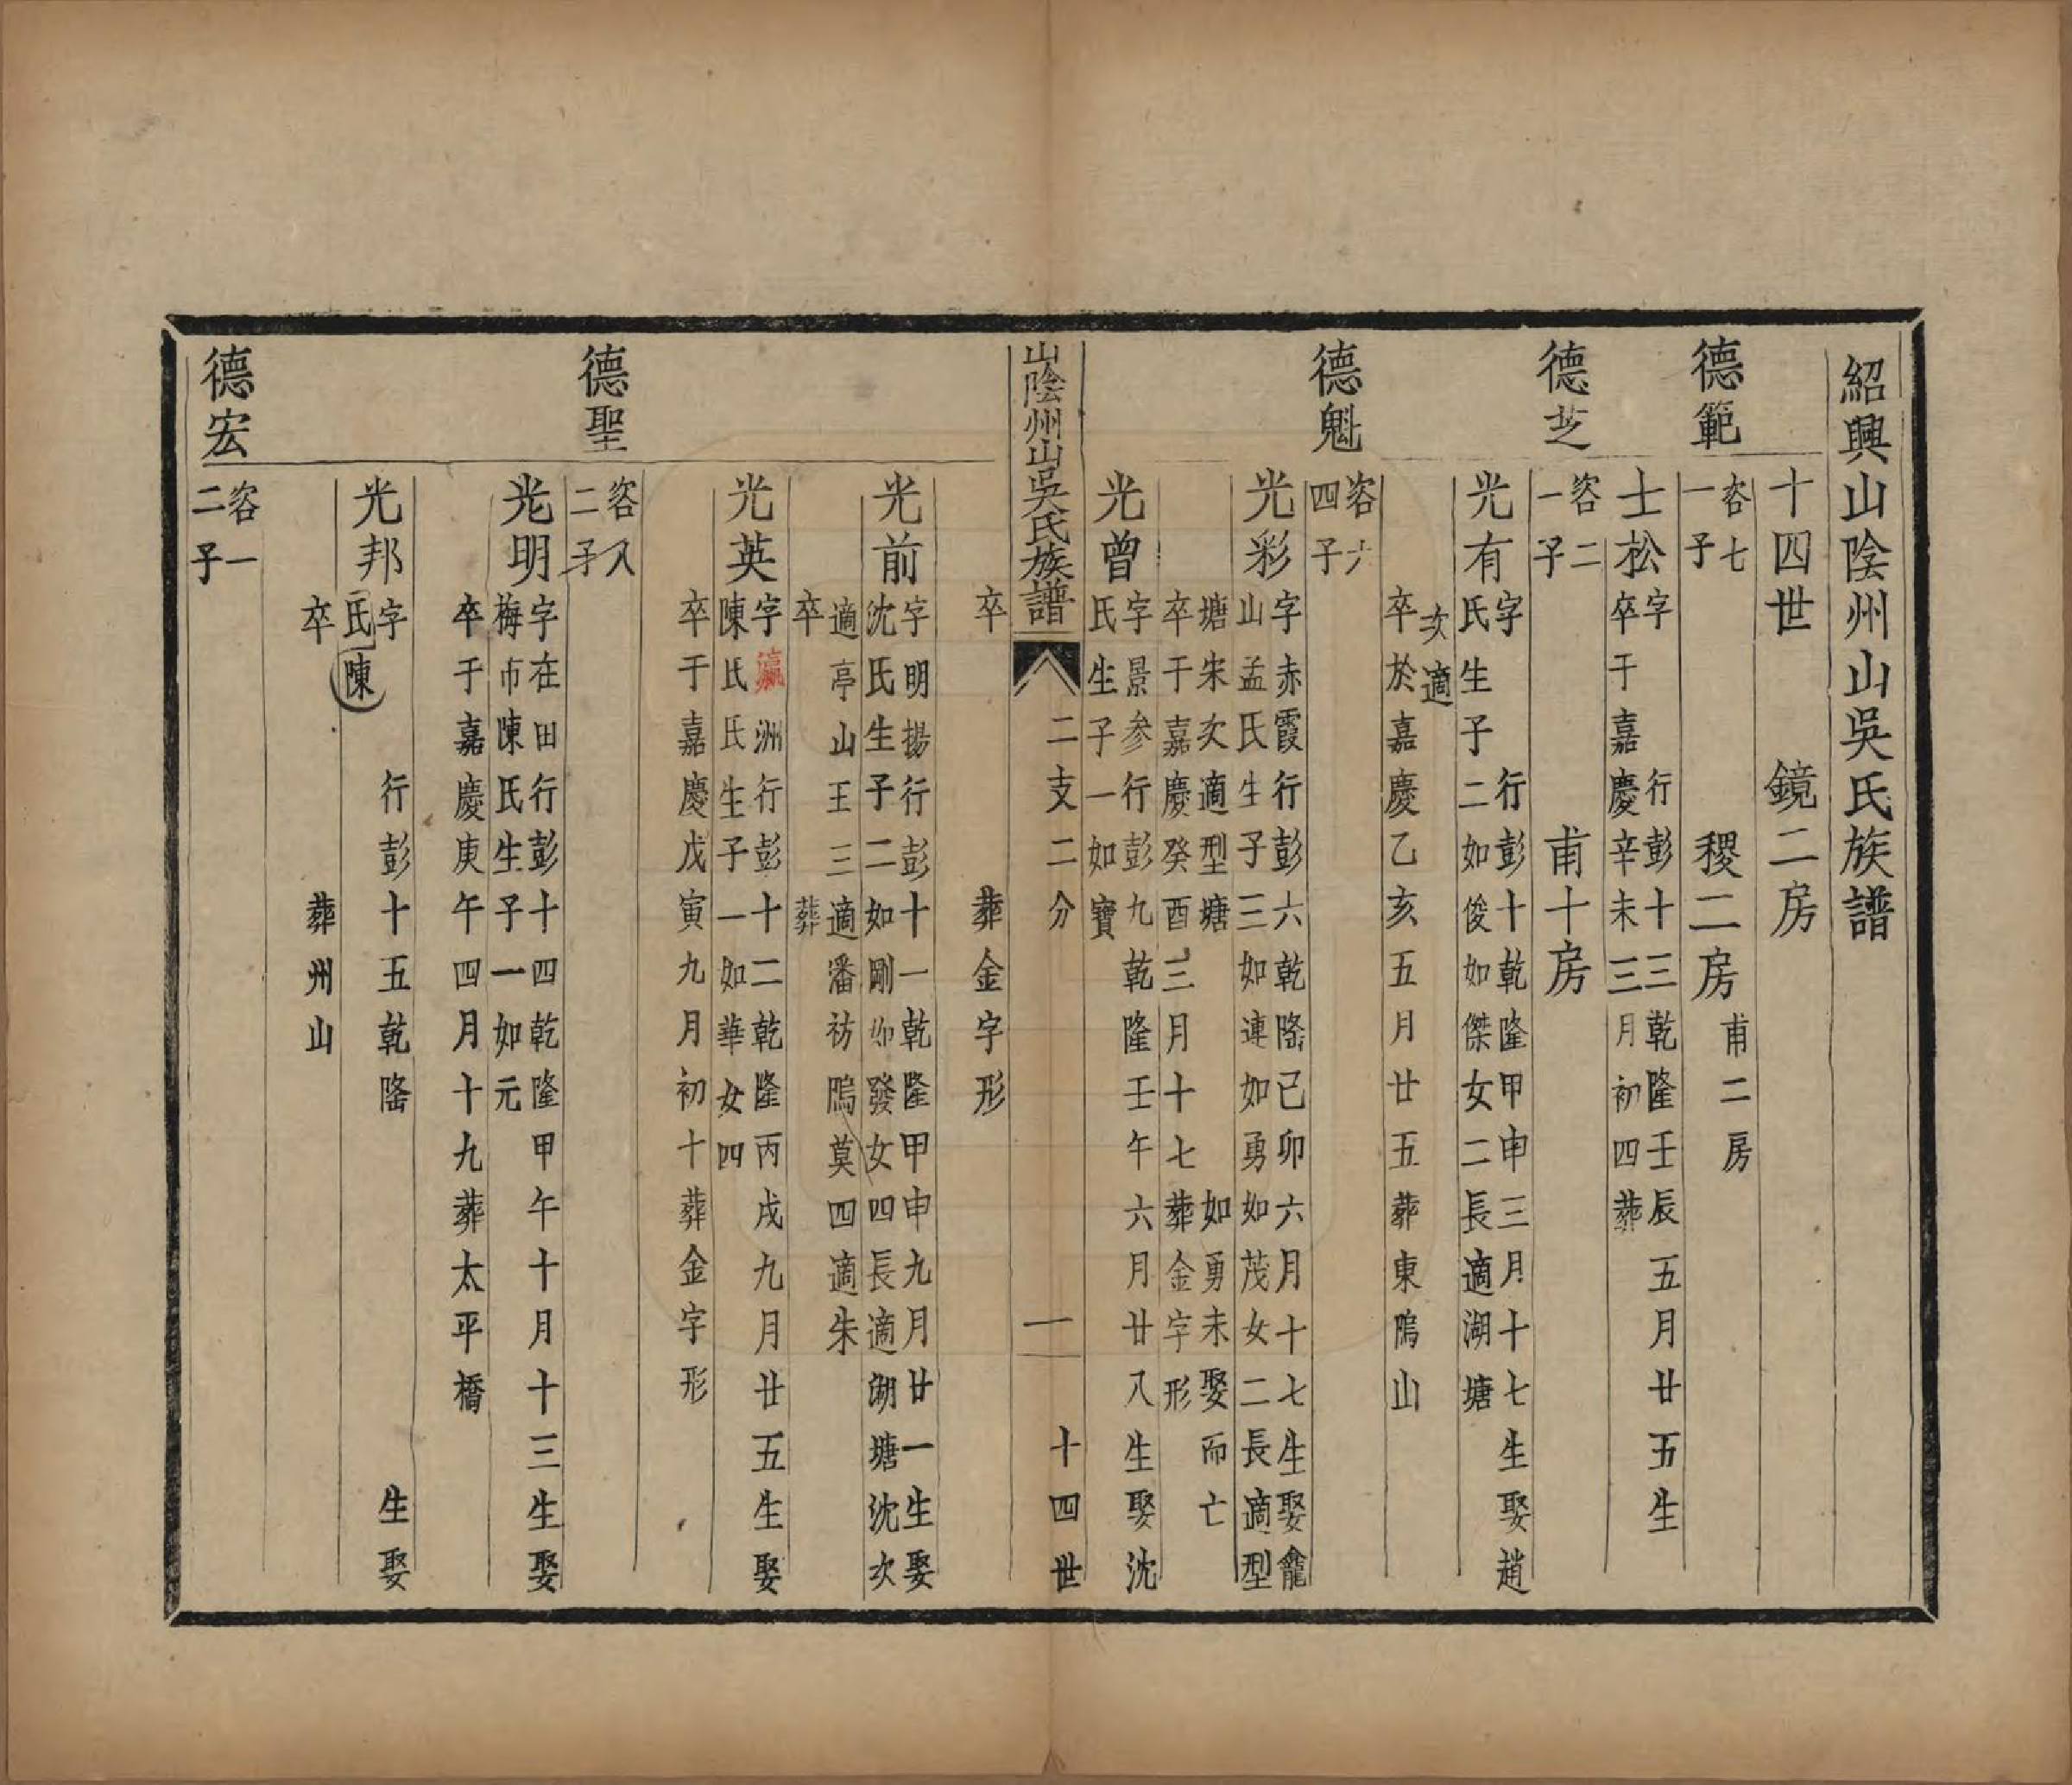 紹興山陰州山吳氏族譜
十四世　鏡二房
稷二房　甫二房
德範
容七
一子
士松
字　行彭十三乾隆壬辰五月廿五生
卒于嘉慶辛未三月初四葬
甫十房
德芝
容二
一子
光有
字　行彭十乾隆甲申三月十七生娶趙
氏生子二如俊如傑女二長適湖塘
次適
卒於嘉慶乙亥五月廿五葬東隖山
德魁
容六
四子
光彩
字赤霞行彭六乾隆己卯六月十七生娶龕
山孟氏生子三如連如勇如茂女二長適型
塘宋次適型塘　如勇未娶而亡
卒于嘉慶癸酉三月十七葬金字形
光曾
字景参行彭九乾隆壬午六月廿八生娶沈
氏生子一如寶
山陰州山吳氏族譜
二支二分
一
十四世
卒　葬金字形
光前
字明揚行彭十一乾隆甲申九月廿一生娶
沈氏生子二如剛如發女四長適湖塘沈次
適亭山王三適潘祊隖莫四適朱
卒　葬
光英
字瀛洲行彭十二乾隆丙戌九月廿五生娶
陳氏氏生子一如華女四
卒于嘉慶戊寅九月初十葬金字形
德聖
容八
二子
光明
字在田行彭十四乾隆甲午十月十三生娶
梅市陳氏生子一如元
卒于嘉慶庚午四月十九葬太平橋
光邦
字　行彭十五乾隆　生娶
氏陳
卒　葬州山
德宏
容一
二子